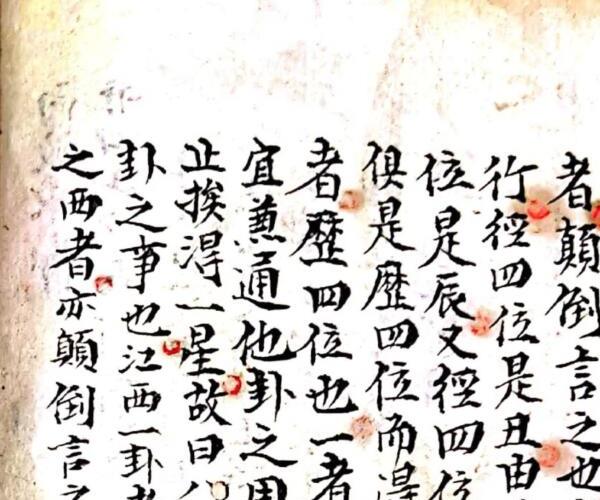 者顛倒言之也
行徑四位是丑由
位是辰又徑四位
俱是歷四位而得
者歷四位也一者
宜兼通他卦之用
止挨得一星故曰八
卦之事也江西一卦者
之西者亦顛倒言之